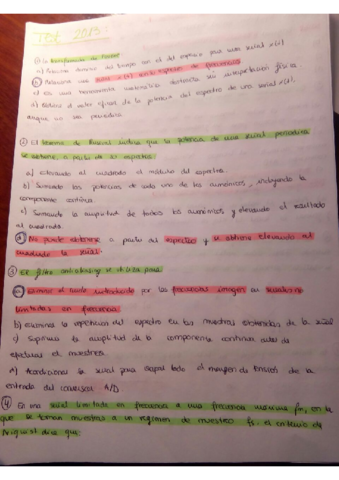 TEST 2013
1) La transformada de Fourier
a) Relaciona dominio del tiempo con el del espectro para una señal x(t)
b) Relaciona una señal x(t) con la expresión de frecuencia
c) Es una herramienta matemática abstracta sin interpretación física
d) Obtiene el valor eficaz de la potencia del espectro de una señal x(t),
aunque no sea periódica.
2) El teorema de Parseval indica que la potencia de una señal periódica
se obtiene a partir de su espectro
a) elevando al cuadrado el módulo del espectro.
b) Sumando las potencias de cada uno de los armónicos, incluyendo la
componente continua
c) Sumando la amplitud de todos los armónicos y elevando el resultado
al cuadrado.
d) No puede obtenerse a partir del espectro y se obtiene elevando al
cuadrado la señal.
3) El filtro antialiasing se utiliza para:
a) Eliminar el ruido introducido por las frecuencias imagen en señales no
limitadas en frecuencia.
b) elimina la repetición del espectro en las muestras de la señal
c) Suprimir la amplitud de la componente continua antes de
efectuar el muestreo.
d) Acondicionar la señal para todo el margen de tensión de la
entrada del conversor A/D
4) En una señal limitada en frecuencia a una frecuencia máxima fm, en la
que se toman muestras a un régimen de muestreo fs, el criterio de
Nyquist dice que: